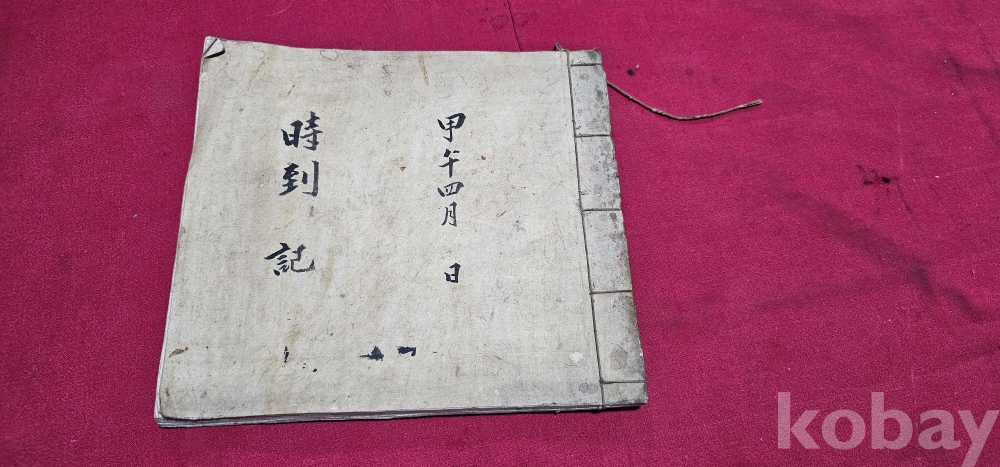 甲午四月 日
時到 記
kobay